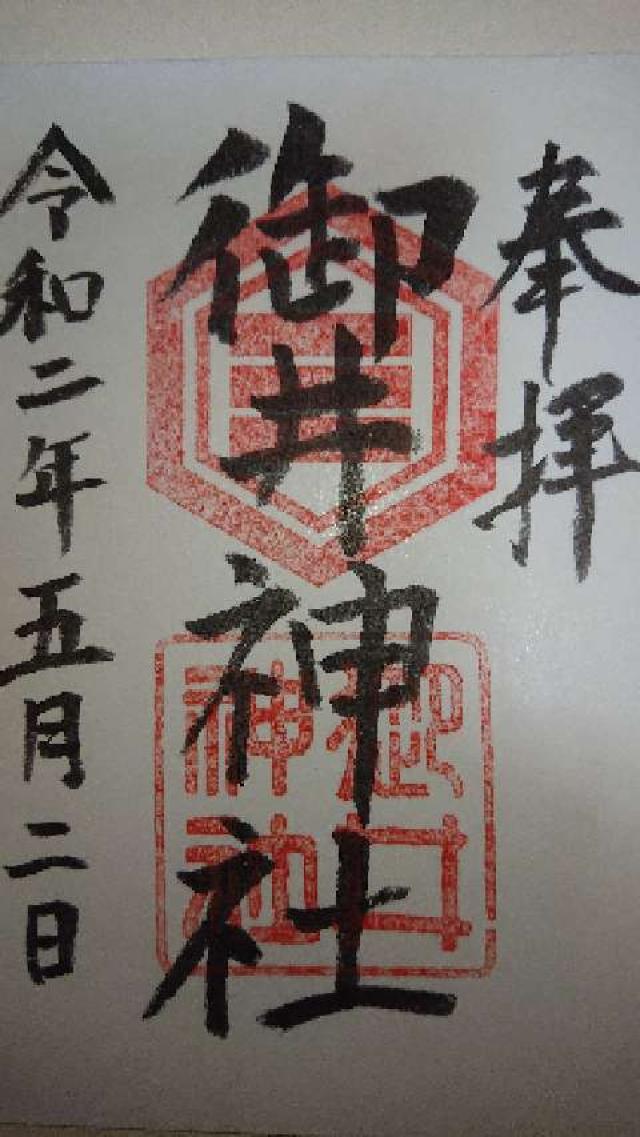 奉拝
御井神社
御井
神社
令和二年五月二日